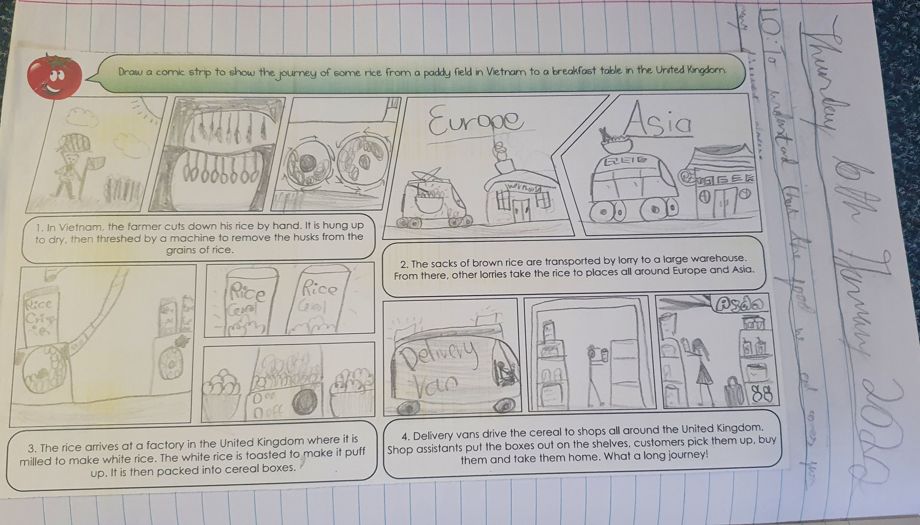 Thursday 6th
LO: To understand that the food we eat
Draw a comic strip to show the journey of some rice from a paddy field in Vietnam to a breakfast table in the United Kingdom.
1. In Vietnam, the farmer cuts down his rice by hand. It is hung up
to dry, then threshed by a machine to remove the husks from the
grains of rice.
Europe
Asia
2. The sacks of brown rice are transported by lorry to a large warehouse.
From there, other lorries take the rice to places all around Europe and Asia.
Rice
Rice
Rice
3. The rice arrives at a factory in the United Kingdom where it is
milled to make white rice. The white rice is toasted to make it puff
up. It is then packed into cereal boxes.
Delivery
Van
4. Delivery vans drive the cereal to shops all around the United Kingdom.
Shop assistants put the boxes out on the shelves, customers pick them up, buy
them and take them home. What a long journey!